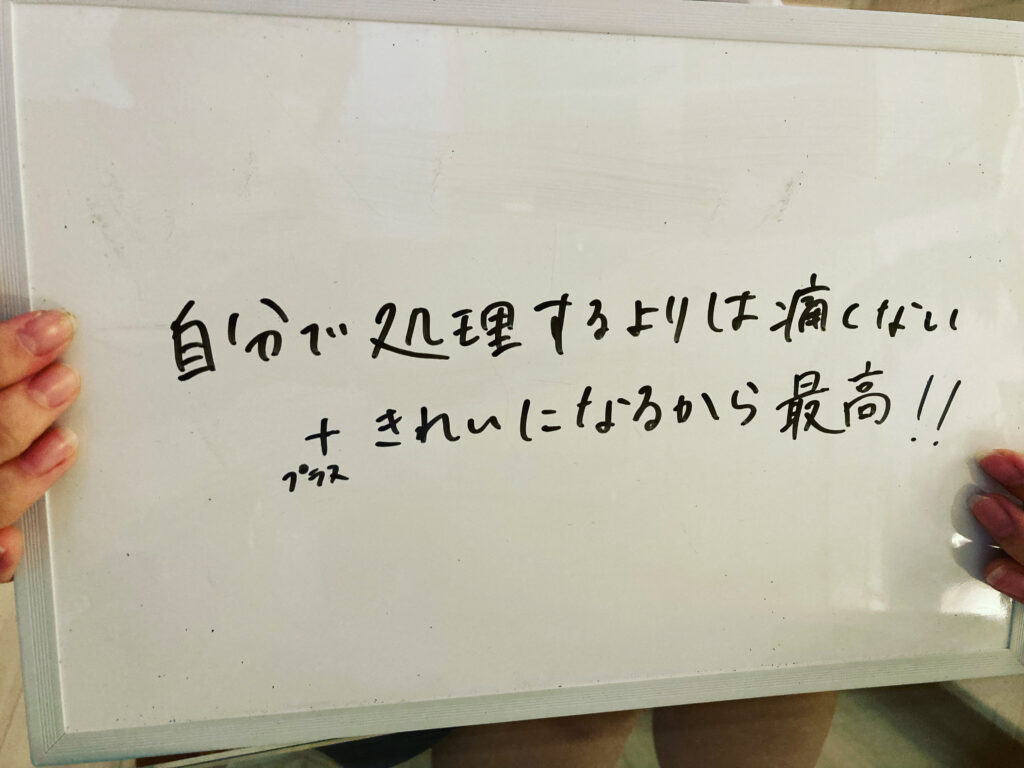 自分で処理するよりは痛くない
+きれいになるから最高!!
プラス